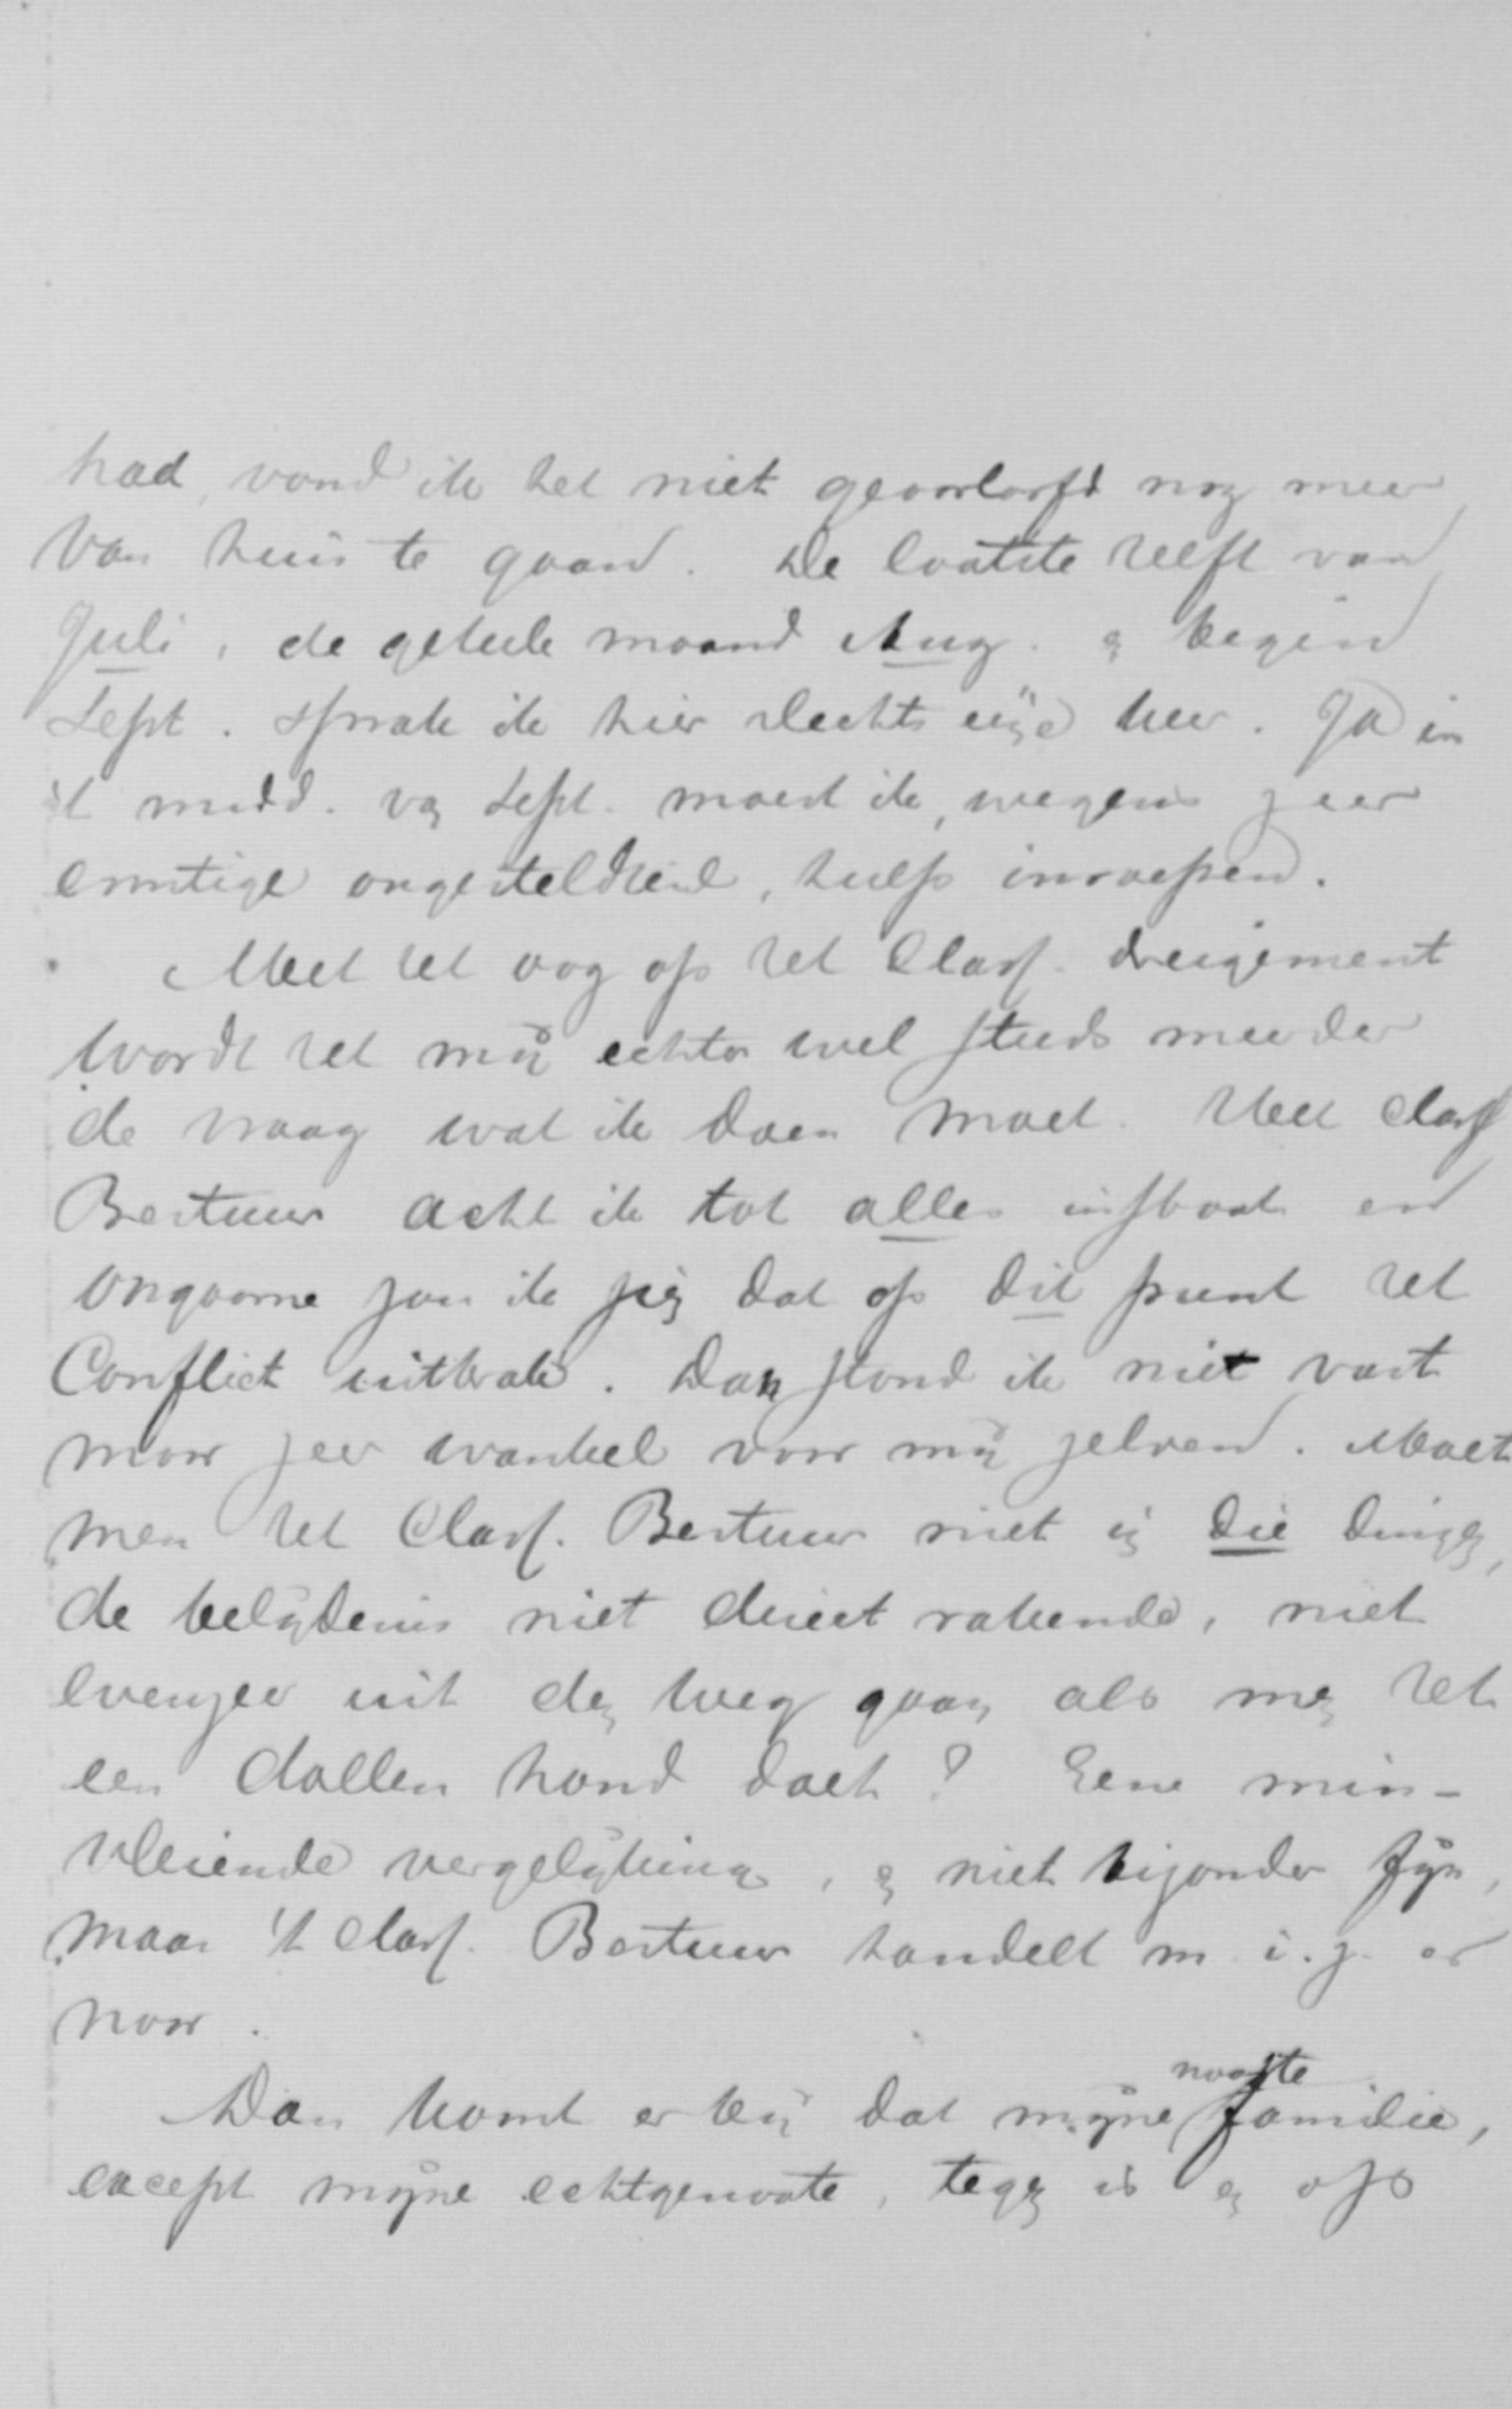 had, vond ik het niet geoorlooft nog meer
van huis te gaan. De laatste helft van
Juli, de geheele maand Aug. en begin
Sept. sprak ik hier slechts eene keer. Ja in
't midd. van Sept. moest ik, wegens zeer
ernstige ongesteldheid, hulp inroepen.
Met het oog op het Class. dreigement
wordt het mij echter wel steeds meerder
de vraag wat ik doen moet. Het Class.
Bestuur acht ik tot alles instaat en
ongaarne zou ik zien dat op dit punt het
Conflict uitbrak. Dan stond ik niet vast
maar zeer wankel voor mij zelven. Moet
men het Class. Bestuur niet in die dingen,
de belijdenis niet direct rakende, niet
evenzeer uit den weg gaan als men het
een dollen hond doet? Eene min-
vleiende vergelijking, en niet bijzonder fijn,
maar 't Class. Bestuur handelt m. i. z. er
naar.
Dan komt er bij dat mijne naaste familie,
except mijne echtgenoote, tegen is en op